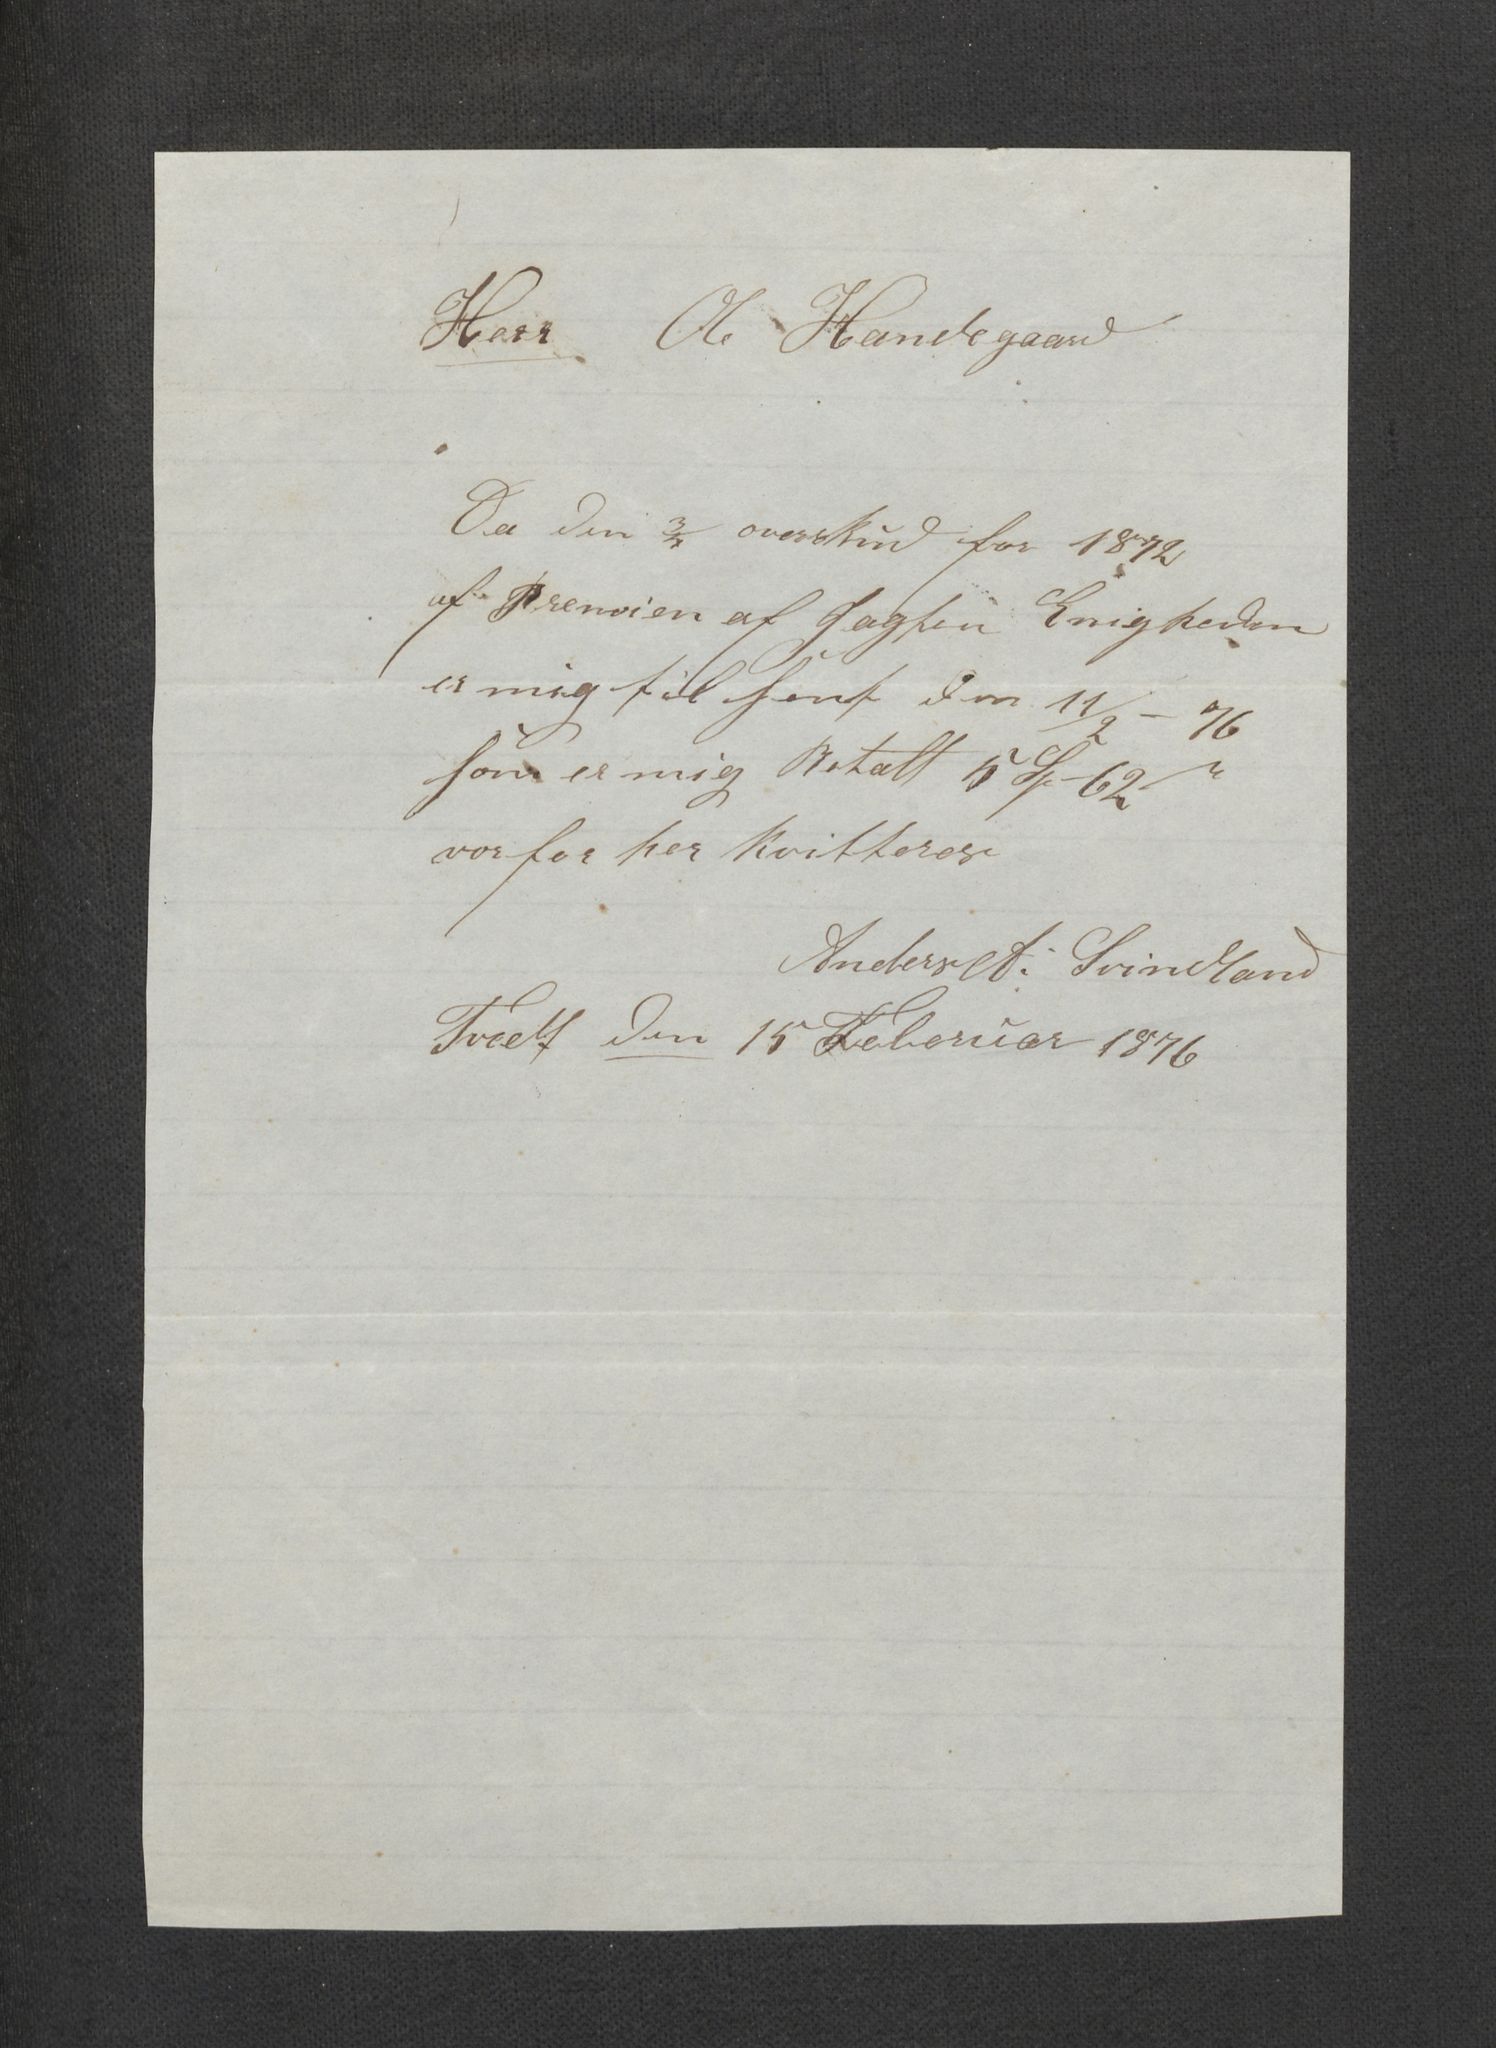 Herr Ole Handegaard
Da den 3/4 overskud for 1872
af Premien af Jagten Enigheden
er mig til sent den 11/2 - 76
som er mig Betalt 5 Sp 62 s
vorfor her kvitterer
Anders A: Svindland
Tveit den 15 Februar 1876